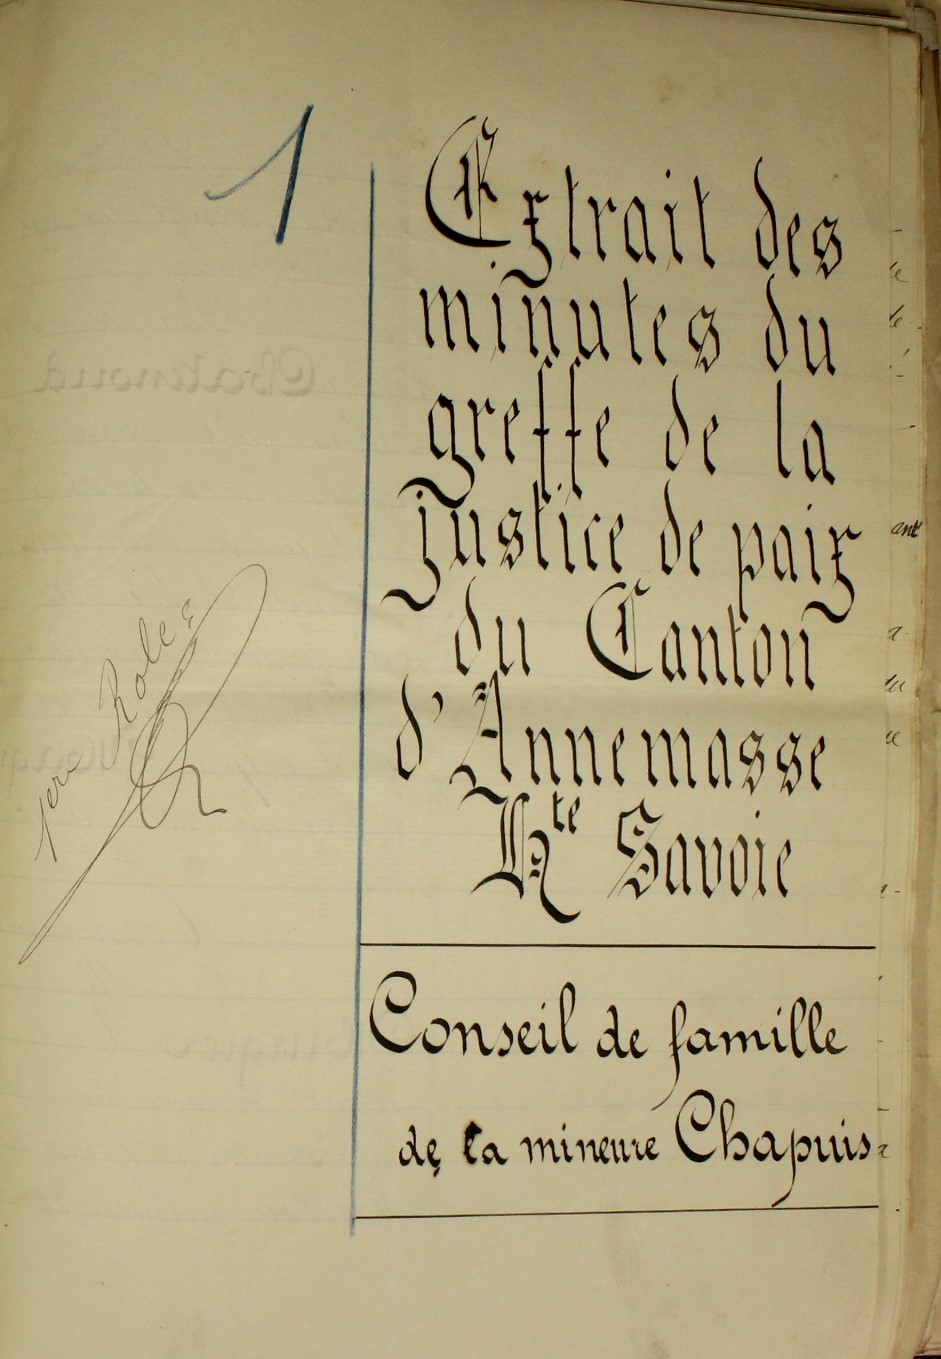 1
Extrait des
minutes du
greffe de la
justice de paix
du Canton
d'Annemasse
Hte Savoie
1ere Role
Conseil de famille
de la mineure Chapuis